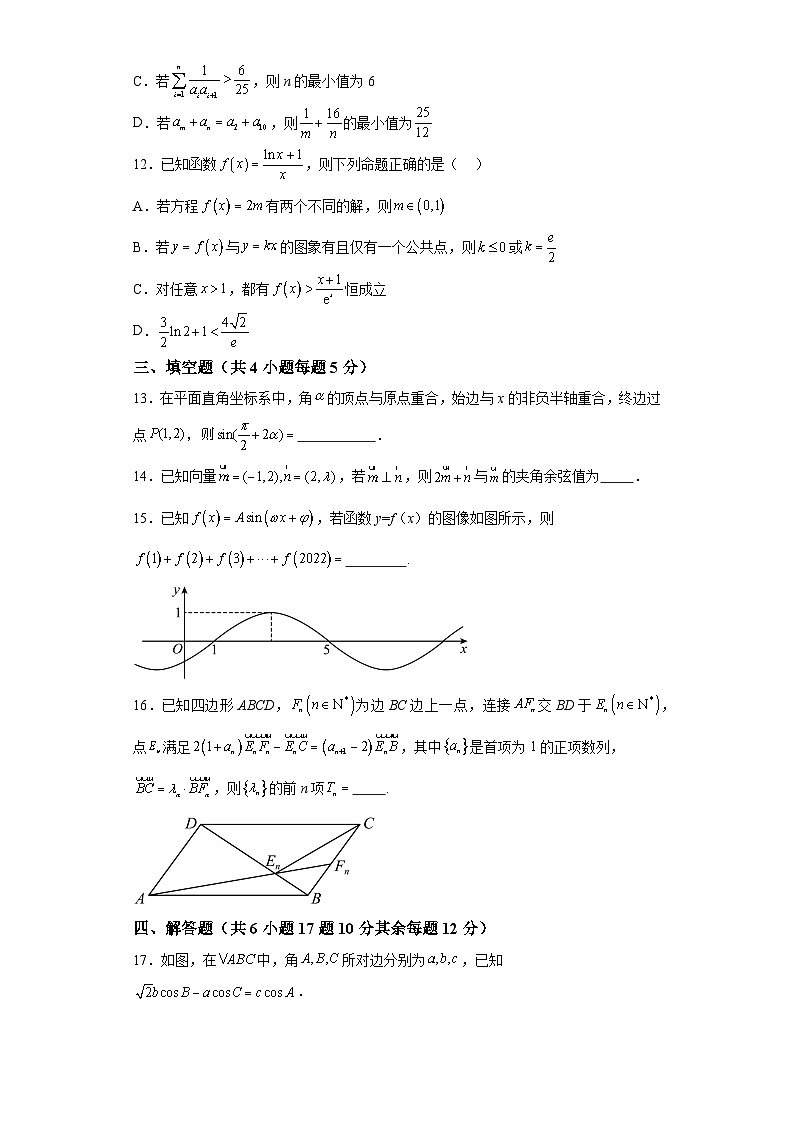 C．若∑_{i=1}^{n} 1/(a_i a_{i+1}) > 6/25，则 n 的最小值为 6
D．若 a_m + a_n = a_2 + a_10，则 1/m + 16/n 的最小值为 25/12
12．已知函数 f(x) = (ln x + 1)/x，则下列命题正确的是（ ）
A．若方程 f(x) = 2m 有两个不同的解，则 m ∈ (0,1)
B．若 y = f(x) 与 y = kx 的图象有且仅有一个公共点，则 k ≤ 0 或 k = e/2
C．对任意 x > 1，都有 f(x) > (x+1)/e^x 恒成立
D．3/2 ln 2 + 1 < 4√2/e
三、填空题（共 4 小题每题 5 分）
13．在平面直角坐标系中，角 α 的顶点与原点重合，始边与 x 的非负半轴重合，终边过
点 P(1,2)，则 sin(π/2 + 2α) = ___________．
14．已知向量 m = (−1,2), n = (2, λ)，若 m ⊥ n，则 2m + n 与 m 的夹角余弦值为_____．
15．已知 f(x) = A sin(ωx + φ)，若函数 y=f（x）的图像如图所示，则
f(1) + f(2) + f(3) + ⋯ + f(2022) = _________.
y
1
O 1 5 x
16．已知四边形 ABCD，F_n (n ∈ N*) 为边 BC 边上一点，连接 AF_n 交 BD 于 E_n (n ∈ N*)，
点 E_n 满足 2(1 + a_n) E_nF_n − E_nC = (a_{n+1} − 2) E_nB，其中 {a_n} 是首项为 1 的正项数列，
BC = λ_n · BF_n，则 {λ_n} 的前 n 项 T_n = _____.
D C
E_n F_n
A B
四、解答题（共 6 小题 17 题 10 分其余每题 12 分）
17．如图，在 VABC 中，角 A, B, C 所对边分别为 a, b, c，已知
√2 b cos B − a cos C = c cos A．